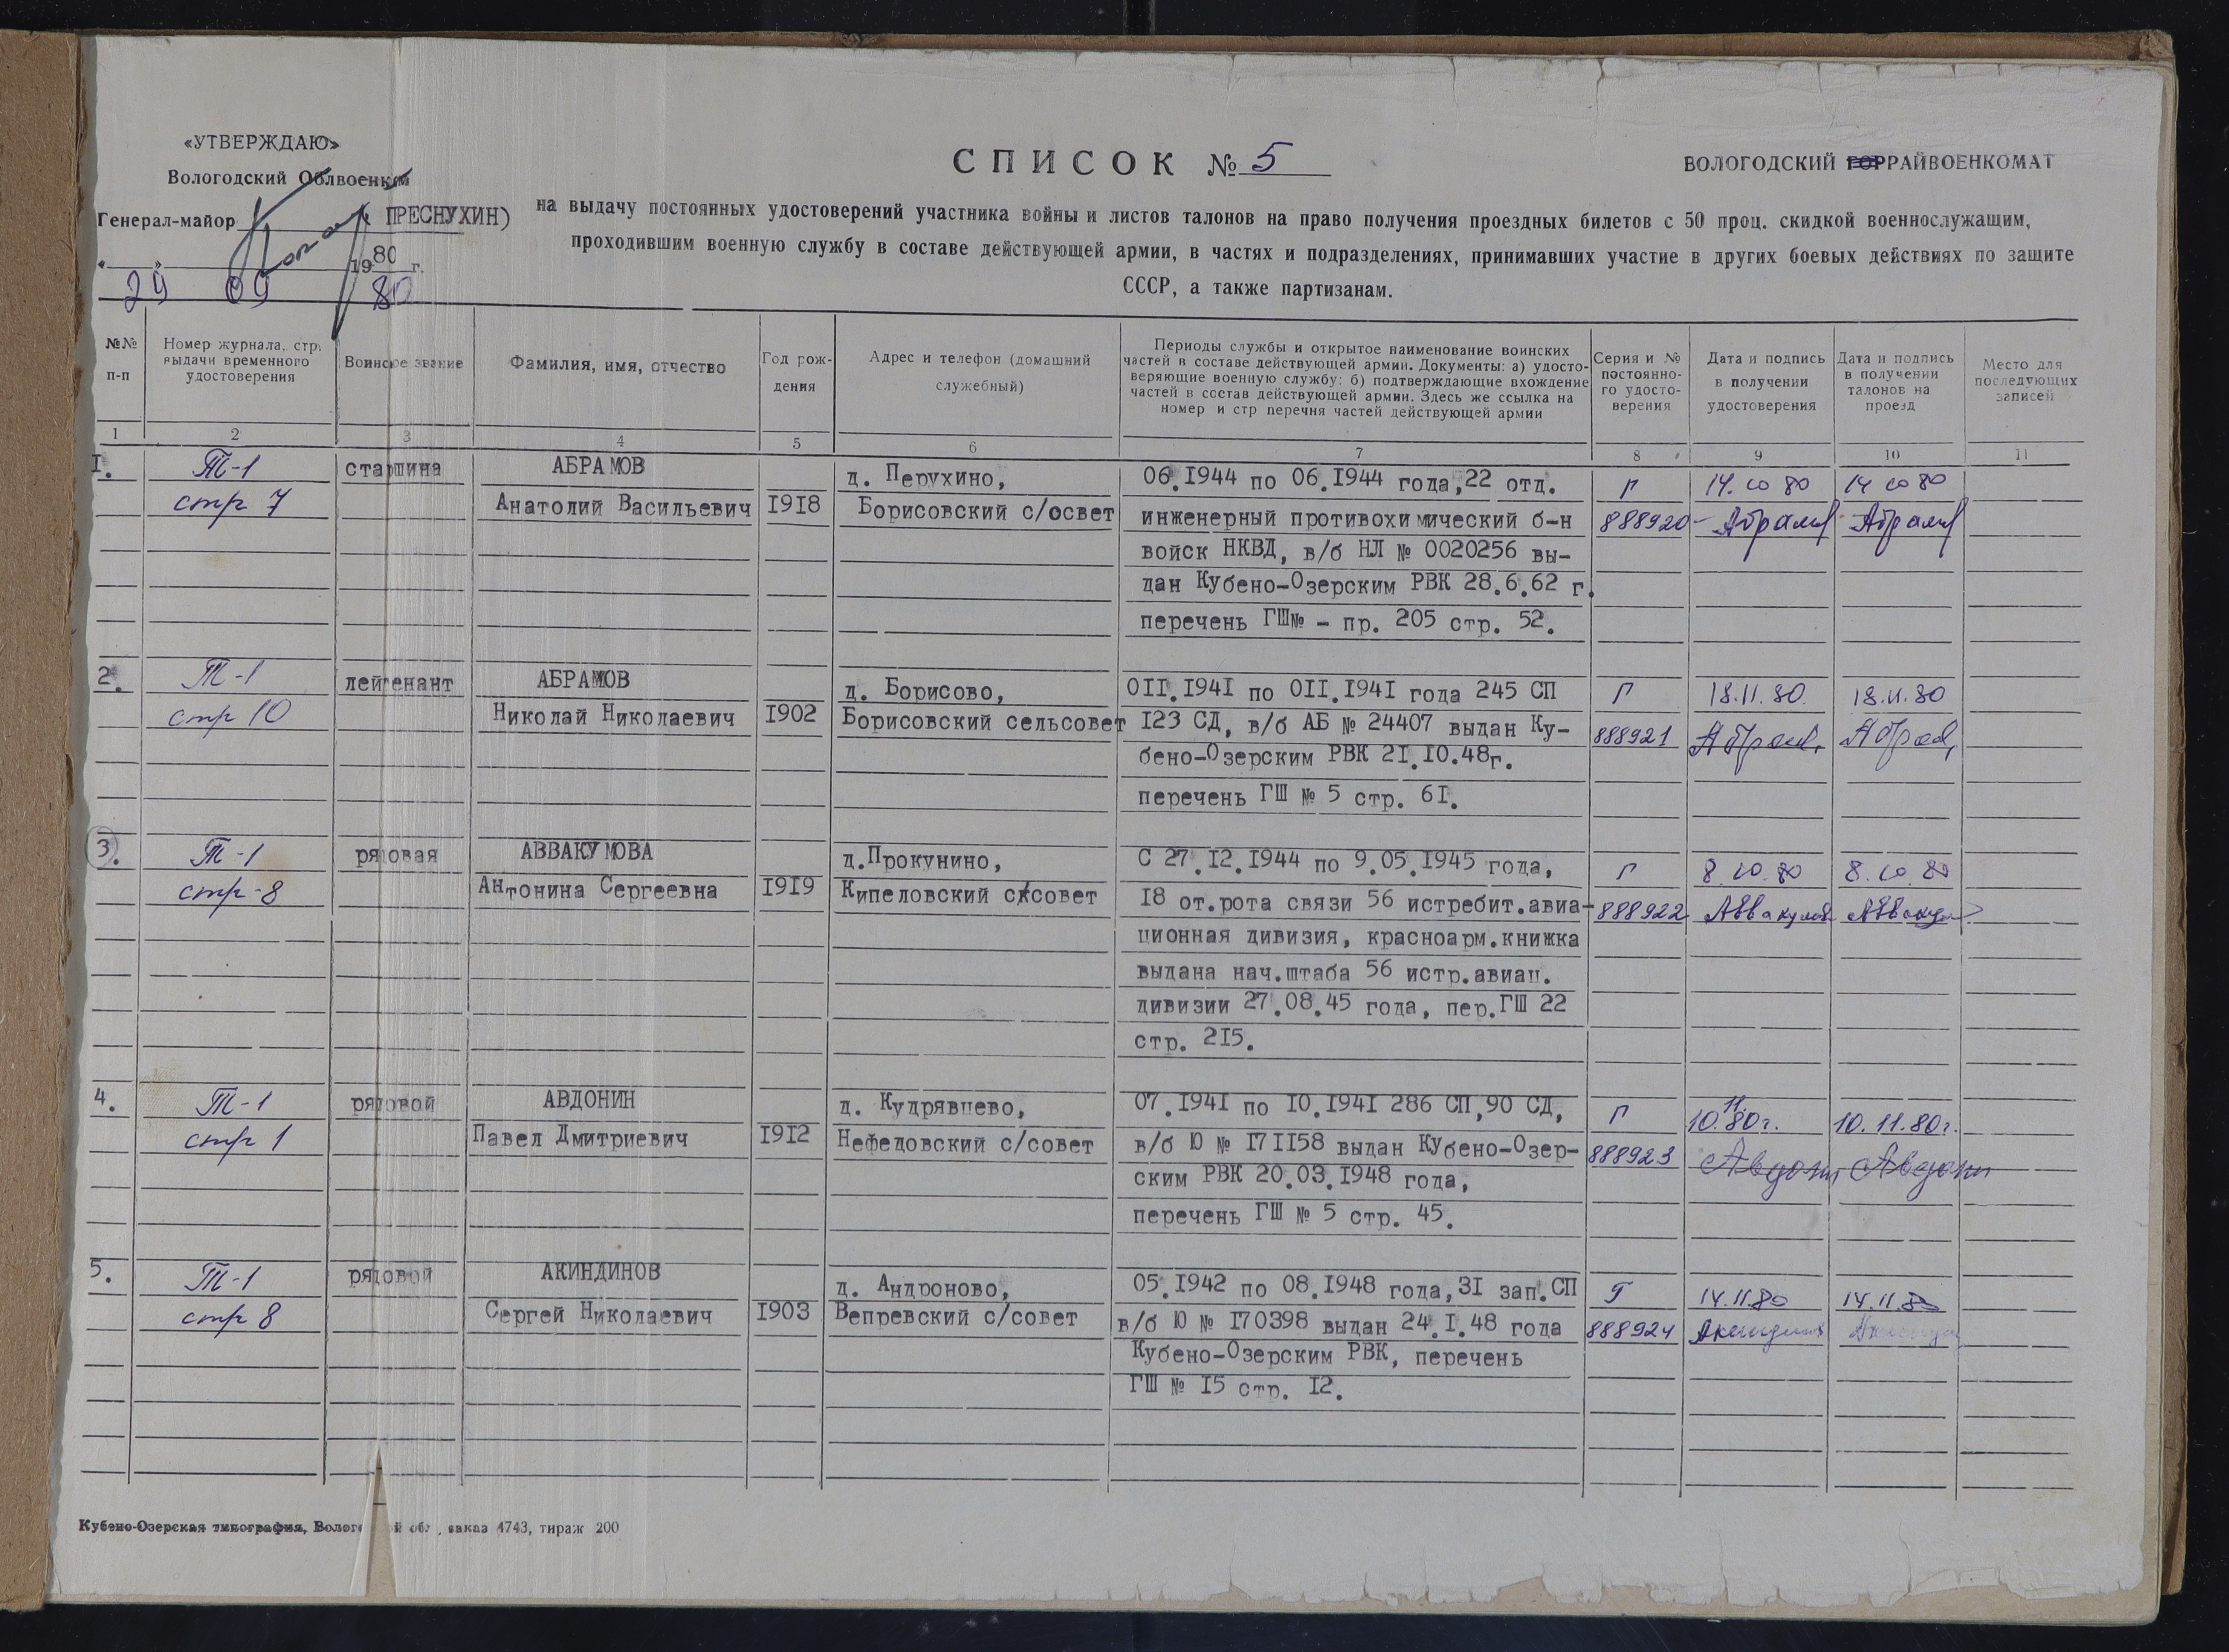 «УТВЕРЖДАЮ»
Вологодский Облвоенком
Генерал-майор ПРЕСНУХИН)
« » 1980 г.
29 09 80
СПИСОК № 5
ВОЛОГОДСКИЙ ГОРРАЙВОЕНКОМАТ
на выдачу постоянных удостоверений участника войны и листов талонов на право получения проездных билетов с 50 проц. скидкой военнослужащим,
проходившим военную службу в составе действующей армии, в частях и подразделениях, принимавших участие в других боевых действиях по защите
СССР, а также партизанам.
№№
п-п
Номер журнала, стр.
выдачи временного
удостоверения
Воинское звание
Фамилия, имя, отчество
Год рож-
дения
Адрес и телефон (домашний
служебный)
Периоды службы и открытое наименование воинских
частей в составе действующей армии. Документы: а) удосто-
веряющие военную службу: б) подтверждающие вхождение
частей в состав действующей армии. Здесь же ссылка на
номер и стр перечня частей действующей армии
Серия и №
постоянно-
го удосто-
верения
Дата и подпись
в получении
удостоверения
Дата и подпись
в получении
талонов на
проезд
Место для
последующих
записей
1 2 3 4 5 6 7 8 9 10 11
I.
Т-1
стр 7
старшина
АБРАМОВ
Анатолий Васильевич
I9I8
д. Перухино,
Борисовский с/освет
06.I944 по 06.I944 года,22 отд.
инженерный противохимический б-н
войск НКВД, в/б НЛ № 0020256 вы-
дан Кубено-Озерским РВК 28.6.62 г.
перечень ГШ№ - пр. 205 стр. 52.
Г
888920
14.10 80
Абрамов
14 10 80
Абрамов
2.
Т-1
стр 10
лейтенант
АБРАМОВ
Николай Николаевич
I902
д. Борисово,
Борисовский сельсовет
0II.I94I по 0II.I94I года 245 СП
I23 СД, в/б АБ № 24407 выдан Ку-
бено-Озерским РВК 2I.I0.48г.
перечень ГШ № 5 стр. 6I.
Г
888921
18.11.80.
18.11.80
3.
Т-1
стр-8
рядовая
АВВАКУМОВА
Антонина Сергеевна
I9I9
д.Прокунино,
Кипеловский с/совет
С 27.I2.I944 по 9.05.I945 года,
I8 от.рота связи 56 истребит.авиа-
ционная дивизия, красноарм.книжка
выдана нач.штаба 56 истр.авиац.
дивизии 27.08.45 года, пер.ГШ 22
стр. 2I5.
Г
888922
8.10.80
8.10.80
4.
Т-1
стр 1
рядовой
АВДОНИН
Павел Дмитриевич
I9I2
д. Кудрявцево,
Нефедовский с/совет
07.I94I по I0.I94I 286 СП,90 СД,
в/б Ю № I7II58 выдан Кубено-Озер-
ским РВК 20.03.I948 года,
перечень ГШ № 5 стр. 45.
Г
888923
10.11.80г.
Авдонин
10.11.80г.
Авдонин
5.
Т-1
стр 8
рядовой
АКИНДИНОВ
Сергей Николаевич
I903
д. Андроново,
Вепревский с/совет
05.I942 по 08.I948 года,3I зап.СП
в/б Ю № I70398 выдан 24.I.48 года
Кубено-Озерским РВК, перечень
ГШ № I5 стр. I2.
Г
888924
14.11.80
14.11.80
Кубено-Озерская типография, обл., заказ 4743, тираж 200